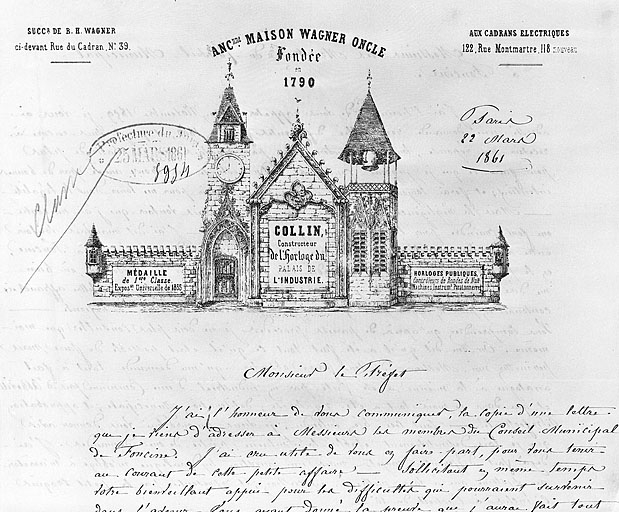 SUCCR DE B. H. WAGNER
ci-devant Rue du Cadran, No. 39.
ANCNNE MAISON WAGNER ONCLE
Fondée
en
1790
AUX CADRANS ELECTRIQUES
122, Rue Montmartre, 118 nouveau
Préfecture du
23 MARS 1861
Paris
22 Mars
1861
COLLIN,
Constructeur
de l'Horloge du
PALAIS DE
L'INDUSTRIE.
MÉDAILLE
de 1ère Classe
Exposon Universelle de 1855
HORLOGES PUBLIQUES
Monsieur le Préfet
J'ai l'honneur de vous communiquer la copie d'une lettre
que je viens d'adresser à Messieurs les membres du Conseil Municipal
de Foncine. J'ai cru utile de vous en faire part, pour vous tenir
au courant de cette petite affaire — sollicitant en même temps
votre bienveillant appui pour les difficultés qui pourraient survenir
dans l'avenir. Vous ayant donné la preuve que j'aurai fait tout